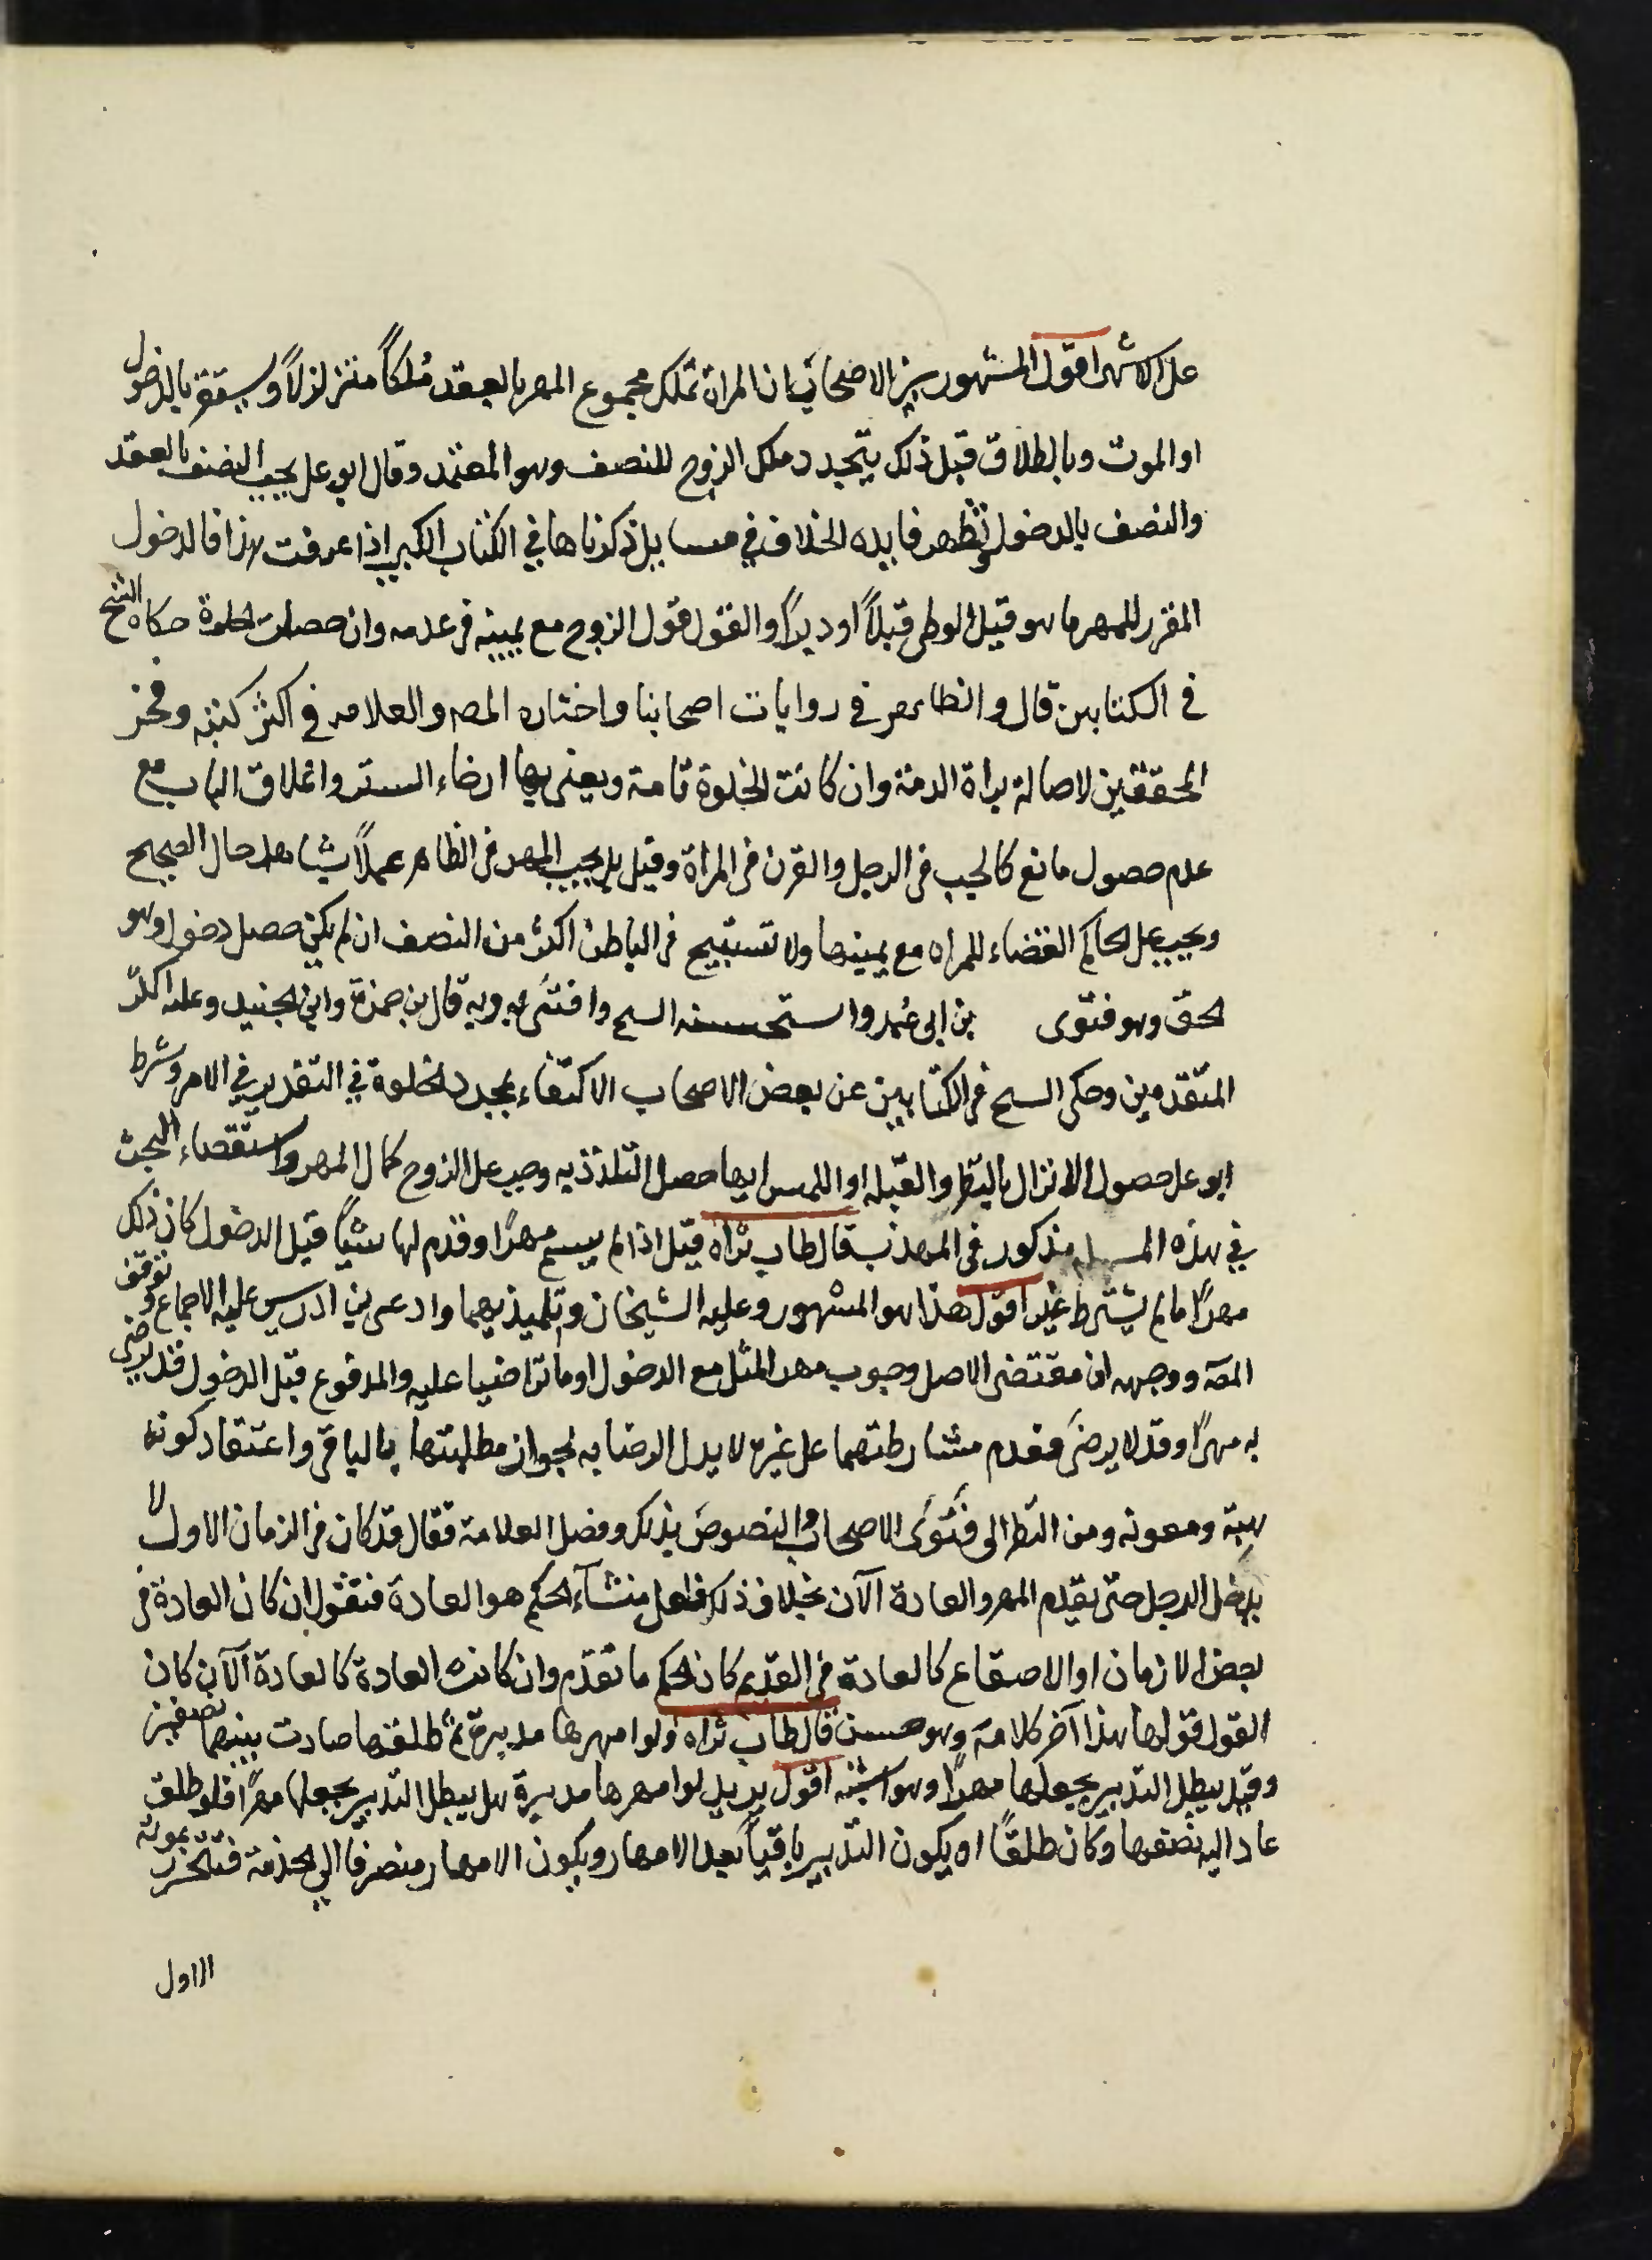 على الاشهر اقول المشهور بين الاصحاب ان المراة تملك مجموع المهر بالعقد مُلكاً متزلزلاً ويستقر بالدخول
او الموت وبالطلاق قبل ذلك يتجدد ملك الزوج للنصف وهو المعتمد وقال ابو على يجب النصف بالعقد
والنصف بالدخول وتظهر فايده الخلاف في مسايل ذكرناها في الكتاب الكبير اذا عرفت هذا فالدخول
المقرر للمهر ما هو قيل الوطى قبلاً او دبراً والقول قول الزوج مع يمينه فى عدمه وان حصلت الخلوة حكاه الشيخ
فى الكتابين قال والظاهر فى روايات اصحابنا واختاره المصه والعلامه فى اكثر كتبه وفخر
المحققين لاصالة براة الذمة وان كانت الخلوة تامة ويعنى بها ارخاء الستر واغلاق الباب مع
عدم حصول مانع كالجب فى الرجل والقرن فى المراة وقيل بل يجب المهر فى الظاهر عملاً بشاهد حال الصحيح
ويجب على الحاكم القضاء للمراه مع يمينها ولا تستبيح فى الباطن اكثر من النصف ان لم يكن حصل دخول وهو
الحق وهو فتوى بن ابى عُمير واستحسنه السح وافتى به وبه قال بن حمزة وابن الجنيد وعليه اكثر
المتقدمين وحكى السح فى الكتابين عن بعض الاصحاب الاكتفاء بمجرد الخلوة في التقدير في الامر وشرط
ابو على حصول الانزال بالنظر والقبله او اللمس ايها حصل التلذذ به وجب على الزوج كمال المهر واستقصاء البحث
في هذه المسله مذكور فى المهذب قال طاب ثراه قيل اذا لم يسم مهرًا وقدم لها شيًا قبل الدخول كان ذلك
مهرًا ما لم يشترط غيره اقول هذا هو المشهور وعليه الشيخان وتلميذيهما وادعى بن ادريس عليه الاجماع وتوقف
المصه ووجهه ان مقتضى الاصل وجوب مهر المثل مع الدخول او ما تراضيا عليه والمدفوع قبل الدخول قد يرضى
به مهرًا وقد لا يرضى فعدم مشارطتهما على غيره لا يدل الرضا به لجواز مطلبتها بالباقى واعتقاد كونه
هبة ومعونه ومن النظر الى فتوى الاصحاب والنصوص بذلك وفصل العلامة فقال قد كان فى الزمان الاول لا
يدخل الرجل حتى يقدم المهر والعادة الآن بخلاف ذلك فلعل منشاء الحكم هو العادة فنقول ان كان العادة فى
بعض الازمان او الاصقاع كالعادة فى القديم كان الحكم ما تقدّم وان كانت العادة كالعادة الآن كان
القول قولها هذا آخر كلامه وهو حسن قال طاب ثراه ولو امهرها مدبرة ثم طلقها صارت بينهما نصفين
وقيل يبطل التدبير بجعلها مهرًا وهو اشبه اقول يريد لو امهرها مدبرة هل يبطل التدبير بجعلها مهرًا فلو طلق
عاد اليه نصفها وكان طلقًا او يكون التدبير باقياً بعد الامهار ويكون الامهار منصرفا الى الخدمة فتتحرر بموته
الاول